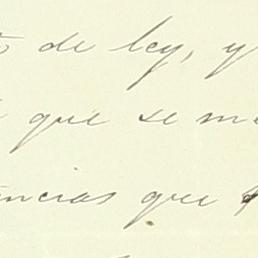 de ley, y
que se me
encias que